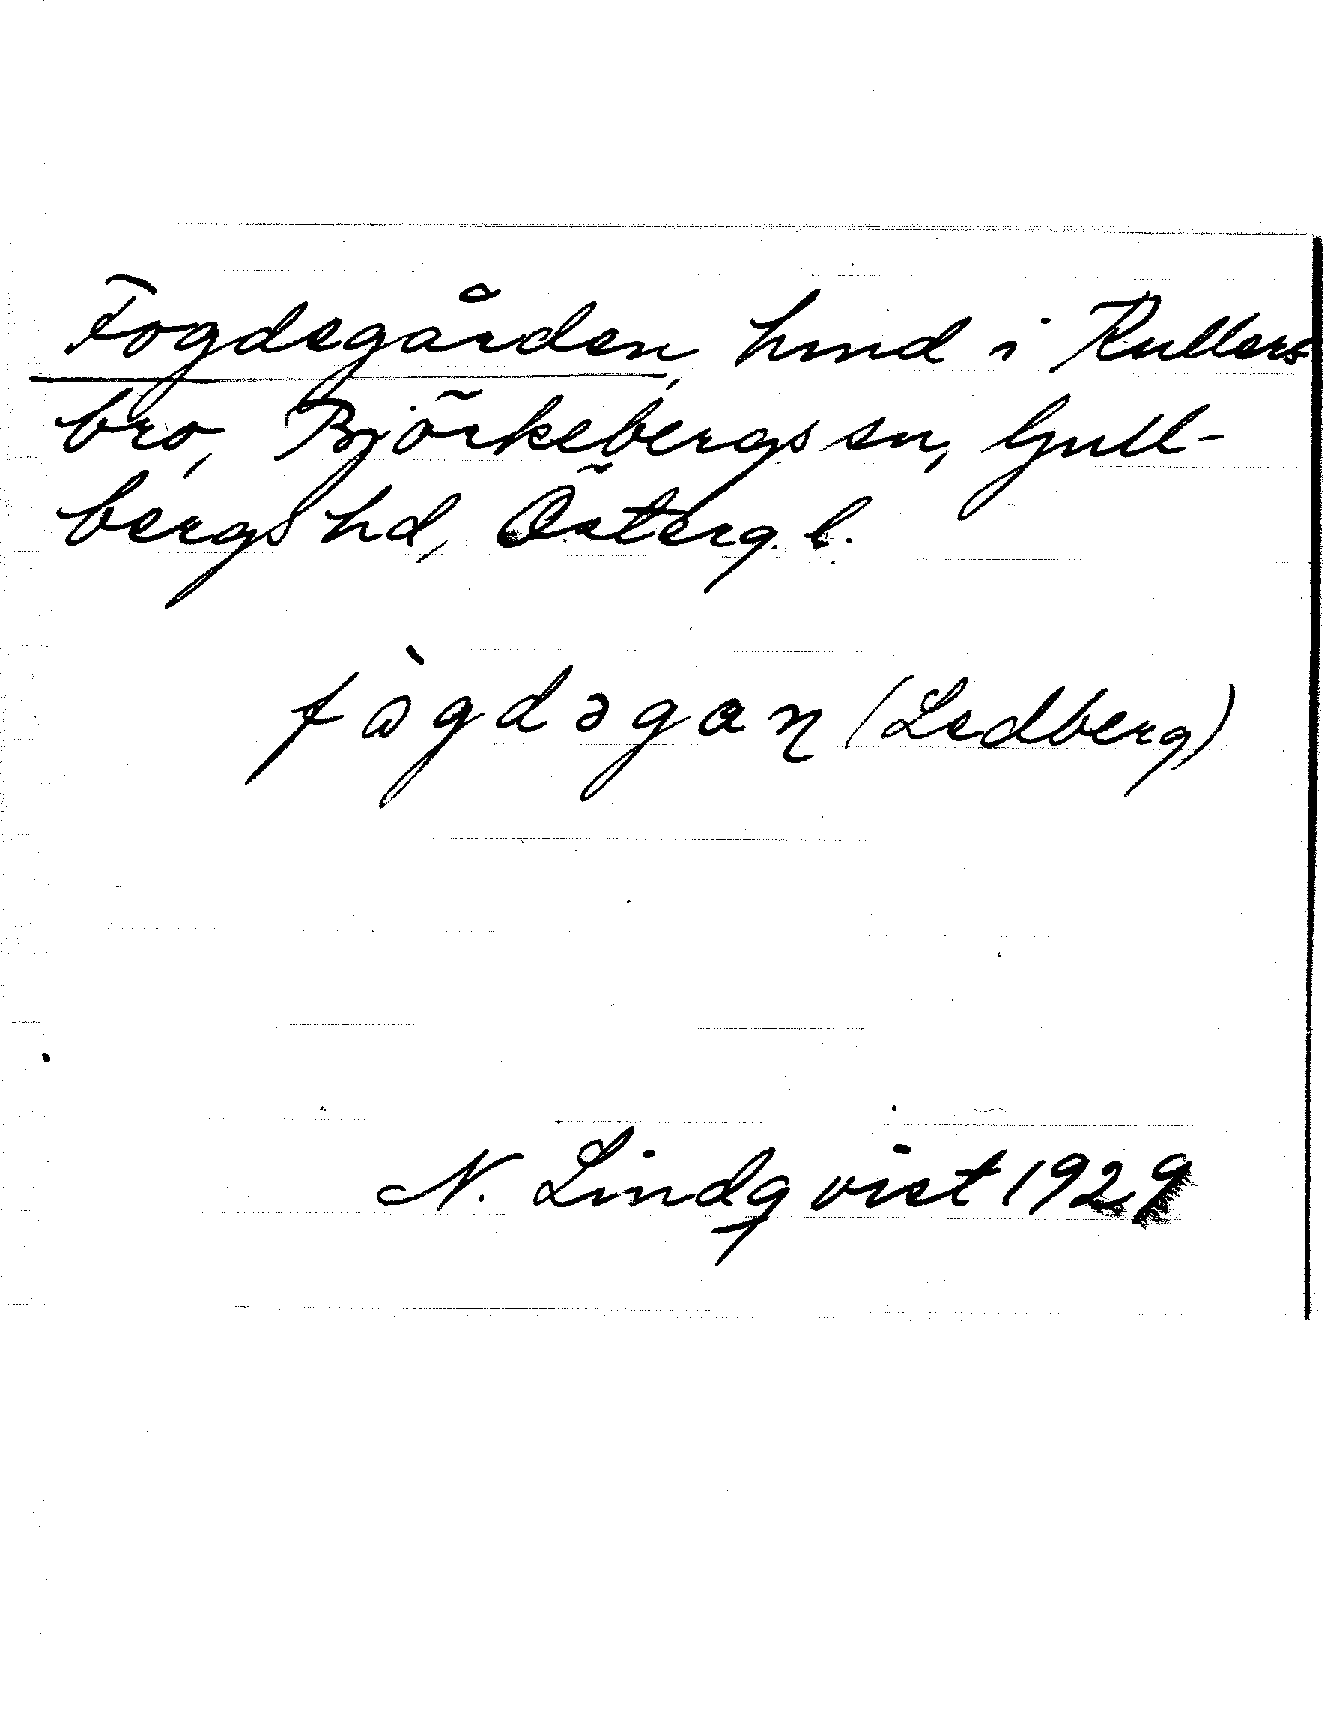 Fogdegården, hmd i Rullers
bro, Björkebergs sn, Gull-
bergs hd, Österg. l.
fògdəgan (Ledberg)
N. Lindqvist 1929